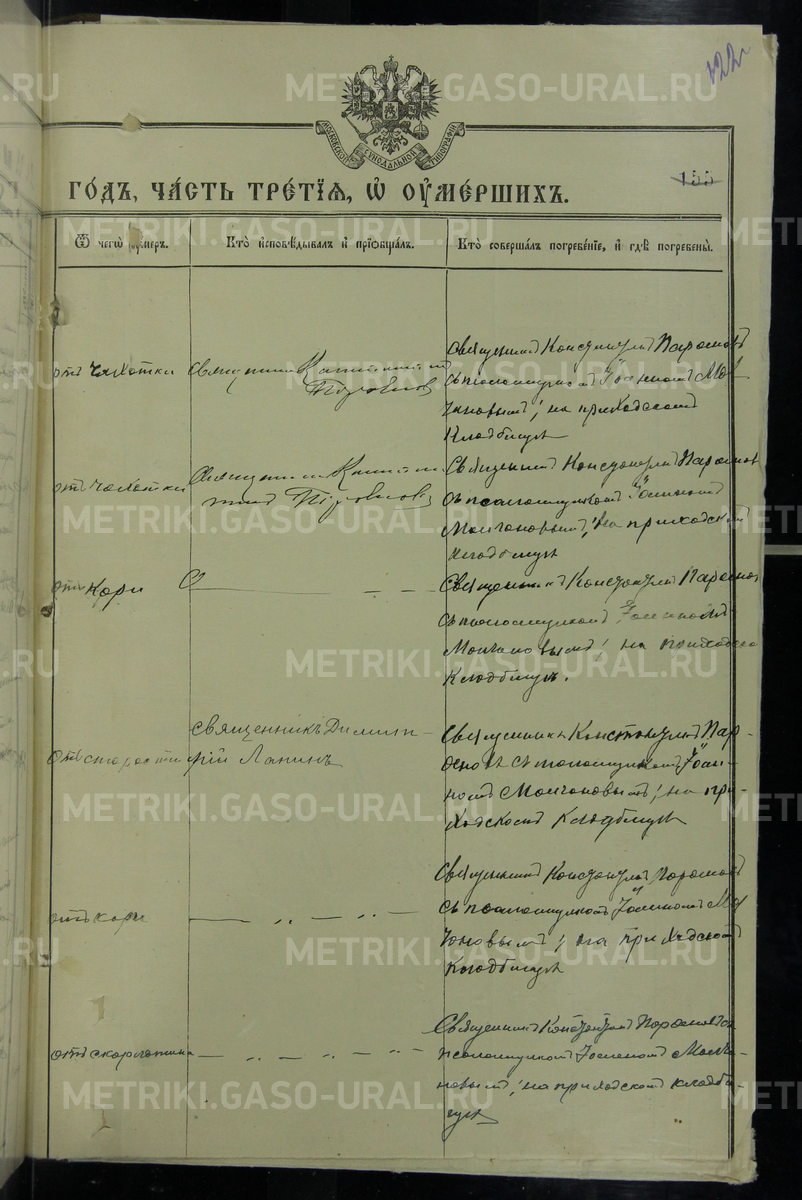 122
МОСКОВСКОЙ СѴНОДАЛЬНОЙ ТИПОГРАФІИ
155
ГО́ДЪ, ЧА́СТЬ ТРЕ́ТІѦ, Ѡ҆ ОУ҆МЕ́РШИХЪ.
Ѿ чегѡ̀ ᲂу҆́меръ.
Кто̀ и҆сповѣ́дывалъ и҆ прїѡбща́лъ.
Кто̀ соверша́лъ погребе́нїе, и҆ гдѣ̀ погребены̀.
отъ чахотки
Священникъ Константинъ
Священникъ Константинъ
съ псаломщикомъ Іоанномъ Мол
чановымъ, на приходскомъ
кладбищѣ
отъ чахотки
Священникъ Констан
тинъ
Священникъ Константинъ
съ псаломщикомъ Іоанномъ
Молчановымъ, на приходскомъ
кладбищѣ
отъ кори
Священникъ Константинъ
съ псаломщикомъ Іоанномъ
Молчановымъ, на приходско
кладбищѣ.
отъ старости
Священникъ Димит-
рій Лапинъ
Священникъ Константинъ
съ псаломщикомъ Іоан-
номъ Молчановымъ, на при-
ходскомъ кладбищѣ
отъ кори
Священникъ Константинъ
съ псаломщикомъ Іоанномъ Мол
чановымъ, на приходскомъ
кладбищѣ
отъ скарлатина
Священникъ Константинъ
псаломщикомъ Іоанномъ Молча-
новымъ, на приходскомъ кладби-
щѣ
METRIKI.GASO-URAL.RU